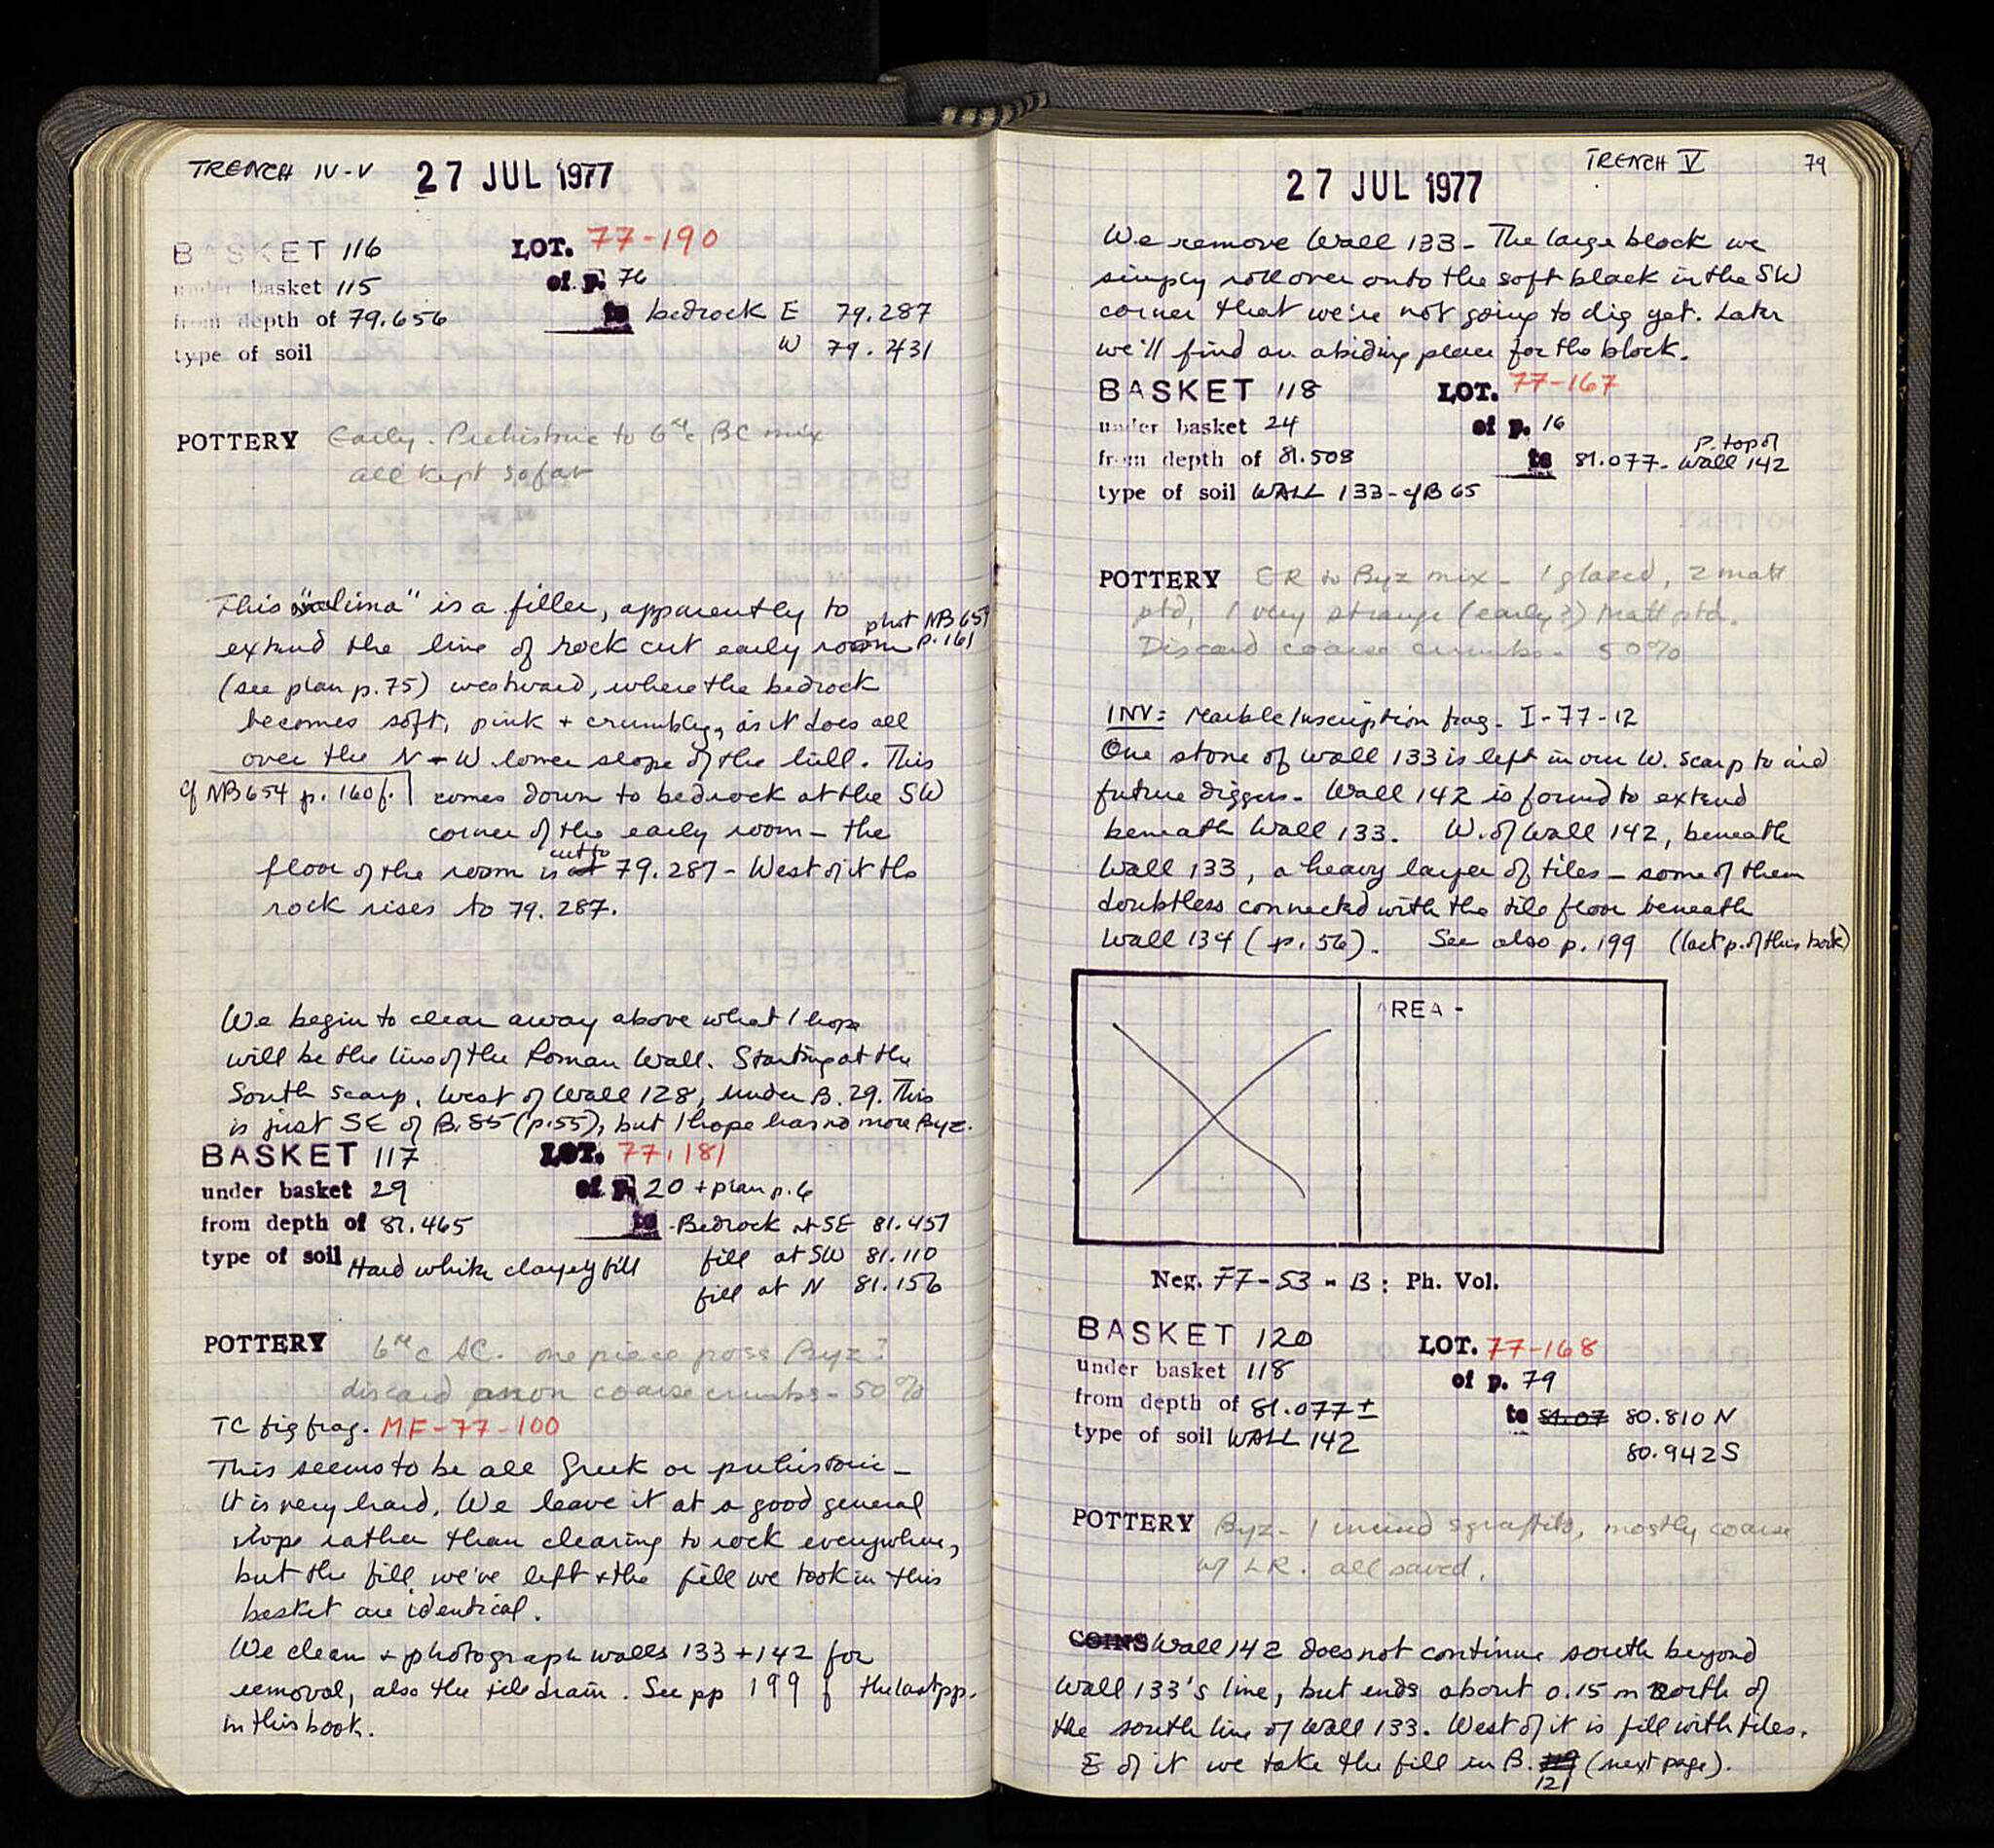 TRENCH IV-V 27 JUL 1977
BASKET 116 LOT. 77-190
under basket 115 of p. 76
from depth of 79.656 to bedrock E 79.287
type of soil W 79.431
POTTERY Early. Prehistoric to 6th c BC mix
all kept so far
This is a filler, apparently to phot NB 654
extend the line of rock cut early room p. 161
(see plan p. 75) westward, where the bedrock
becomes soft, pink + crumbly, as it does all
over the N-W lower slope of the hill. This
cf NB 654 p. 160 f. comes down to bedrock at the SW
corner of the early room - the
floor of the room is cut to 79.287 - West of it the
rock rises to 79.287.
We begin to clear away above what I hope
will be the line of the Roman Wall. Starting at the
South scarp, West of Wall 128, under B. 29. This
is just SE of B. 85 (p. 55), but I hope has no more Byz.
BASKET 117 LOT. 77-181
under basket 29 of p. 20 + plan p. 6
from depth of 81.465 to Bedrock at SE 81.457
type of soil Hard white clayey fill fill at SW 81.110
fill at N 81.156
POTTERY 6th c AC. one piece poss Byz?
discard coarse crumbs - 50%
TC fig frag. MF-77-100
This seems to be all Greek or prehistoric -
It is very hard. We leave it at a good general
slope rather than clearing to rock everywhere,
but the fill we've left + the fill we took in this
basket are identical.
We clean + photograph walls 133 + 142 for
removal, also the tile drain. See pp 199 f the last pp.
in this book.
27 JUL 1977 TRENCH V 79
We remove Wall 133 - The large block we
simply roll over onto the soft black in the SW
corner that we're not going to dig yet. Later
we'll find an abiding place for the block.
BASKET 118 LOT. 77-167
under basket 24 of p. 16
from depth of 81.508 to 81.077 - P. top of Wall 142
type of soil WALL 133 - cf B 65
POTTERY ER to Byz mix - 1 glazed, 2 matt
ptd, 1 very strange (early?) matt ptd.
Discard coarse crumbs - 50%
INV: Marble Inscription frag - I-77-12
One stone of wall 133 is left in our W. scarp to aid
future diggers. Wall 142 is found to extend
beneath Wall 133. W. of Wall 142, beneath
Wall 133, a heavy layer of tiles - some of them
doubtless connected with the tile floor beneath
Wall 134 (p. 56). See also p. 199 (last p. of this book)
AREA -
Neg. 77-53-13: Ph. Vol.
BASKET 120 LOT. 77-168
under basket 118 of p. 79
from depth of 81.077± to 81.07 80.810 N
type of soil WALL 142 80.942 S
POTTERY Byz - 1 incised sgraffito, mostly coarse
w/ LR. all saved.
COINS Wall 142 does not continue south beyond
Wall 133's line, but ends about 0.15 m North of
the south line of Wall 133. West of it is fill with tiles.
E of it we take the fill in B. 119 121 (next page).